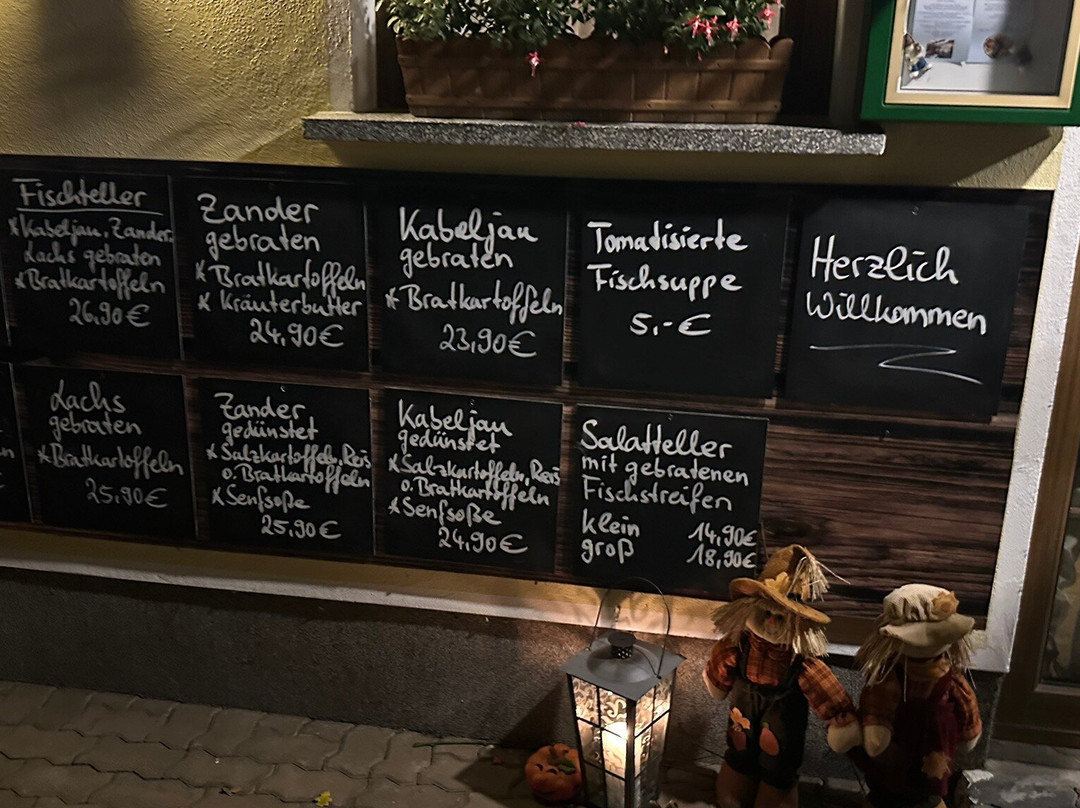 Fischteller
*Kabeljau, Zander,
Lachs gebraten
*Bratkartoffeln
26,90€
Zander
gebraten
*Bratkartoffeln
* Kräuterbutter
24,90€
Kabeljau
gebraten
*Bratkartoffeln
23,90€
Tomatisierte
Fischsuppe
5,-€
Herzlich
Willkommen
Lachs
gebraten
*Bratkartoffeln
25,90€
Zander
gedünstet
*Salzkartoffeln, Reis
o. Bratkartoffeln
*Senfsoße
25,90€
Kabeljau
gedünstet
*Salzkartoffeln, Reis
o. Bratkartoffeln
*Senfsoße
24,90€
Salatteller
mit gebratenen
Fischstreifen
klein 14,90€
groß 18,90€